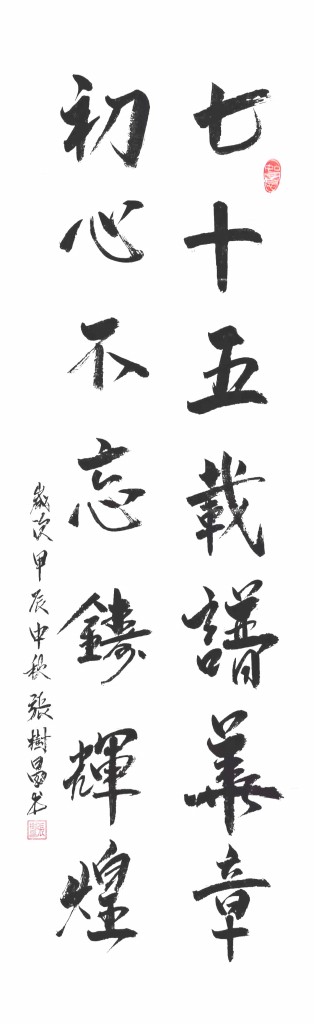 七十五載譜華章
初心不忘鑄輝煌
歲次甲辰中秋張樹昌书